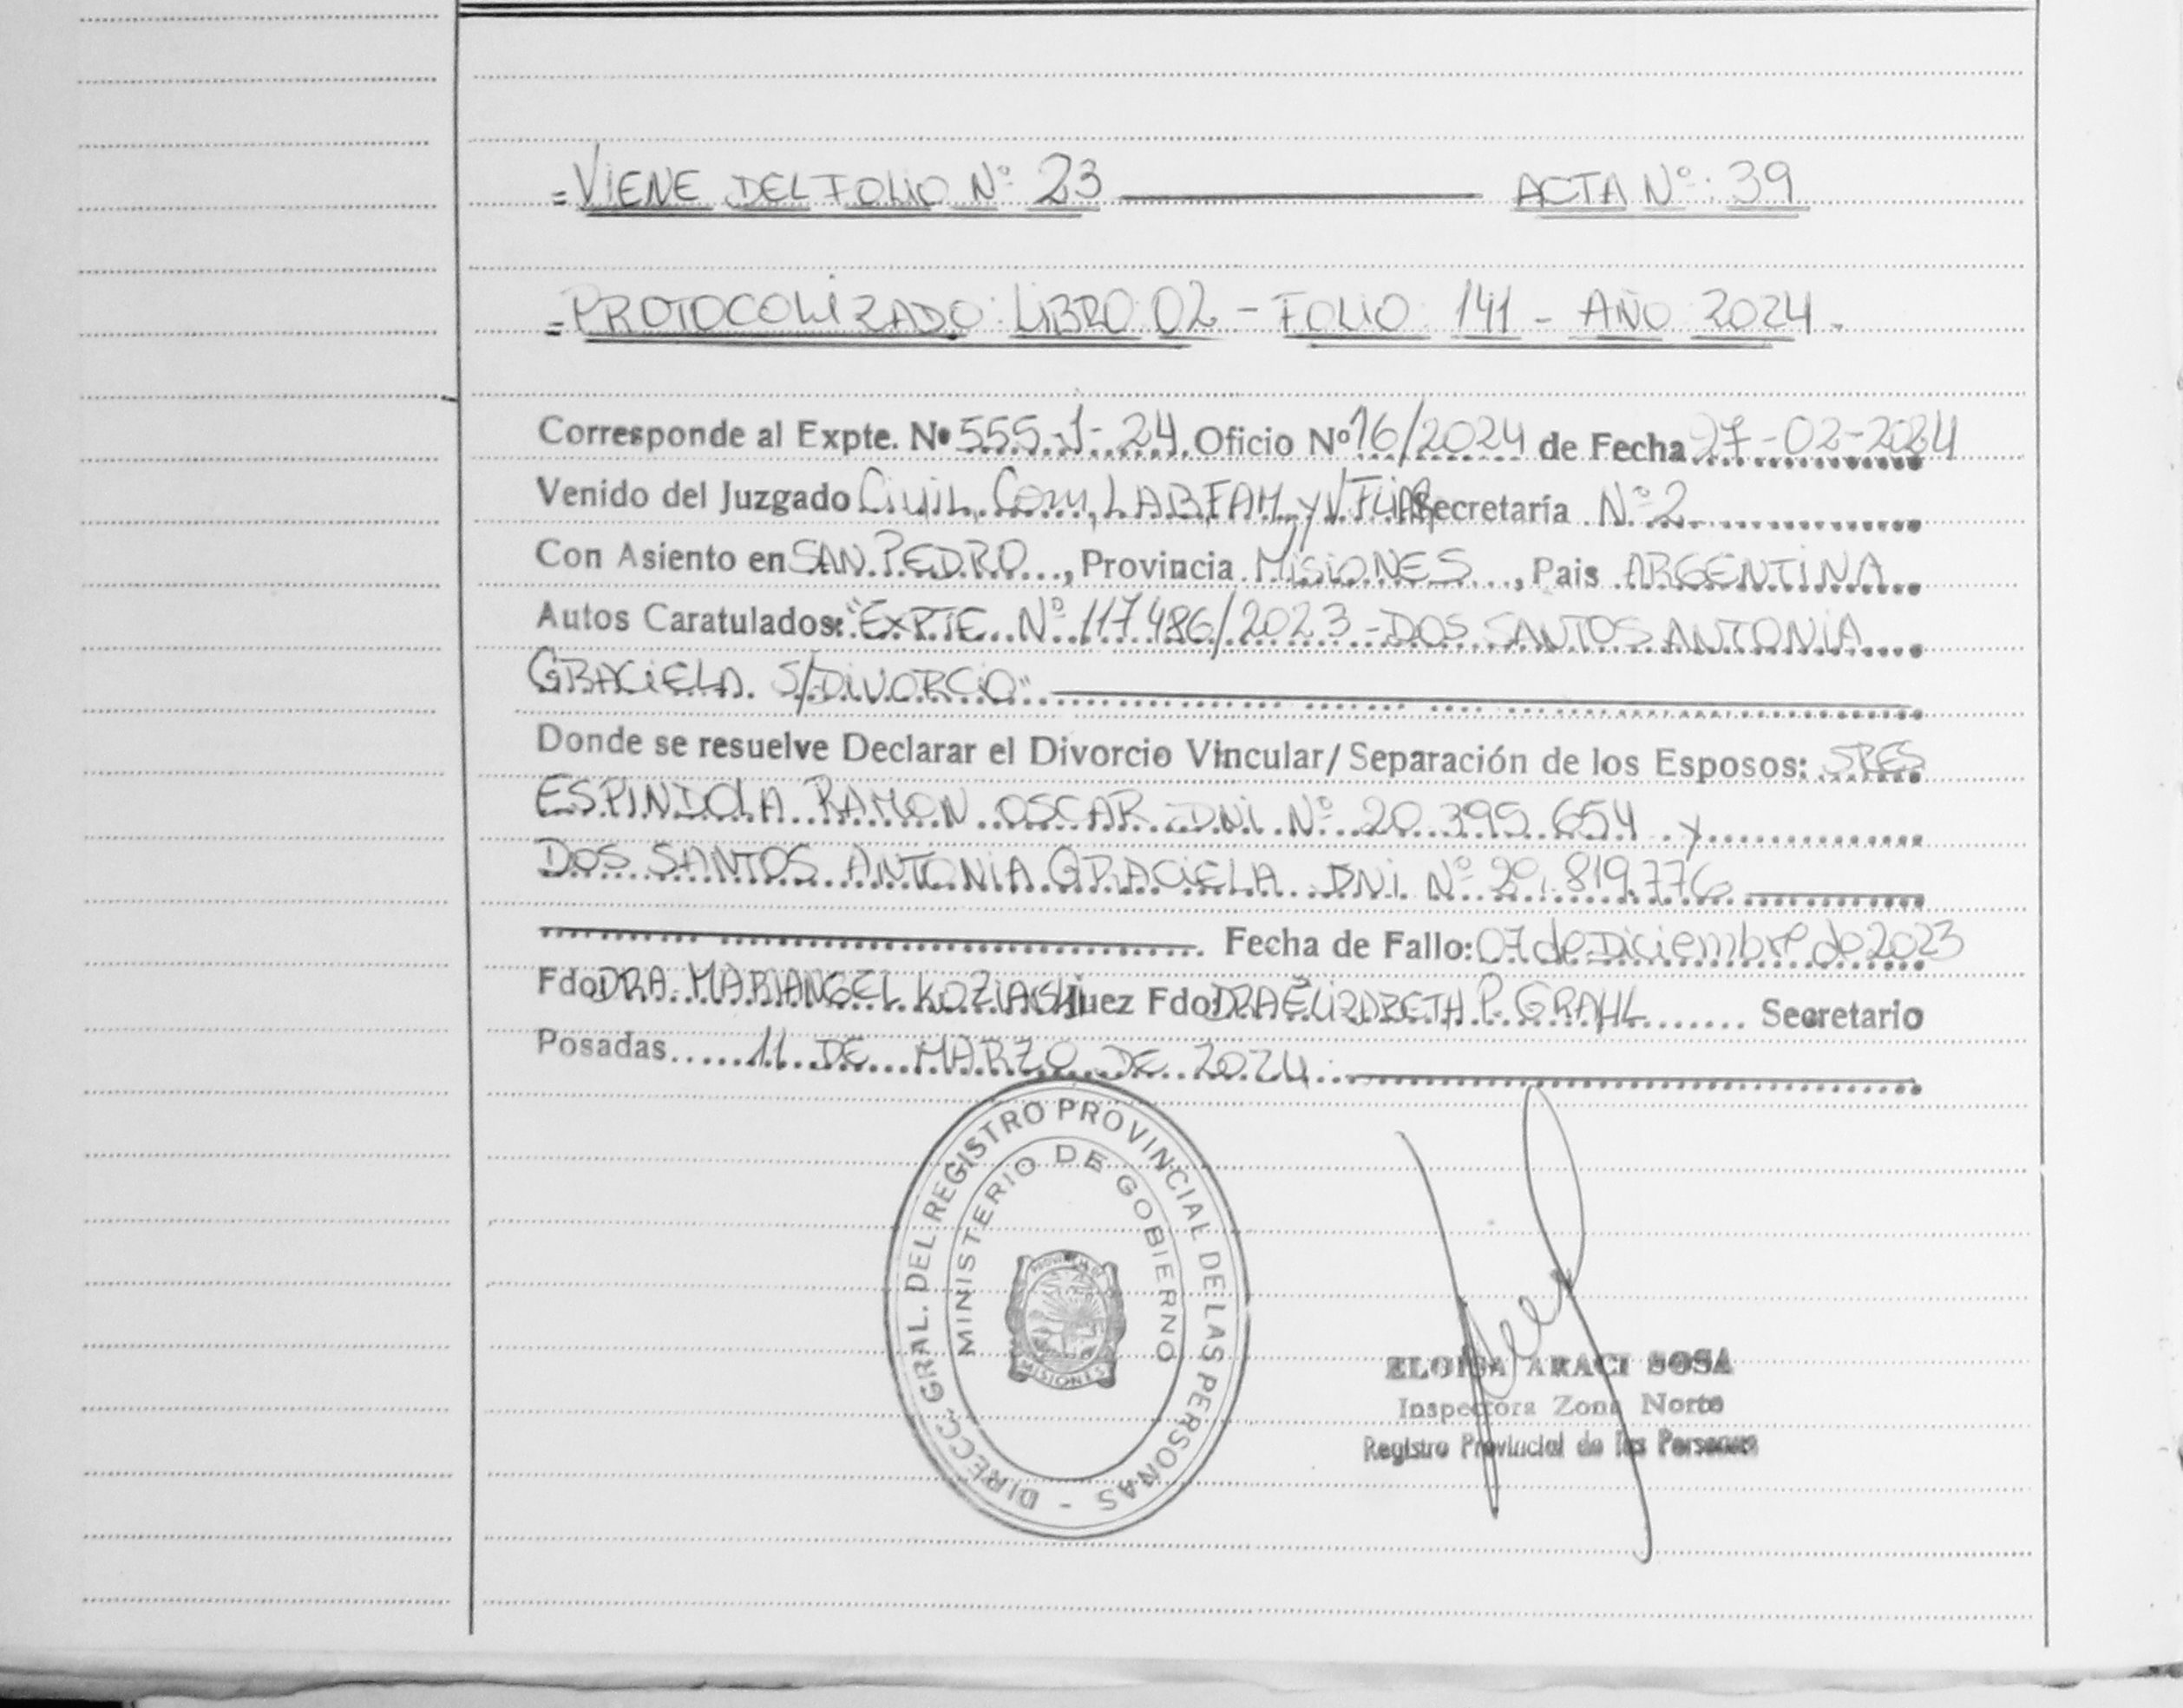 =VIENE DEL FOLIO Nº 23 ACTA Nº: 39
=PROTOCOLIZADO: LIBRO: 02 - FOLIO: 141 - AÑO 2024.
Corresponde al Expte. Nº 555-J-24. Oficio Nº 16/2024 de Fecha 27-02-2024
Venido del Juzgado Civil, Com, LAB FAM y V FLIAR Secretaría Nº 2
Con Asiento en SAN PEDRO, Provincia MISIONES, Pais ARGENTINA
Autos Caratulados: "EXPTE Nº 117486/2023 - DOS SANTOS ANTONIA
GRACIELA S/DIVORCIO"
Donde se resuelve Declarar el Divorcio Vincular/Separación de los Esposos: SRES
ESPINDOLA RAMON OSCAR - DNI Nº 20.395.654 y
DOS SANTOS ANTONIA GRACIELA DNI Nº 819.776
Fecha de Fallo: 07 de Diciembre de 2023
Fdo DRA. MARIANGEL Juez Fdo: DRA ELIZABETH P. GRAHL Secretario
Posadas 11 DE MARZO DE 2024
DIRECC. GRAL. DEL REGISTRO PROVINCIAL DE LAS PERSONAS -
MINISTERIO DE GOBIERNO
PROVINCIA DE
MISIONES
ELOISA ARACI SOSA
Inspectora Zona Norte
Registro Provincial de las Personas